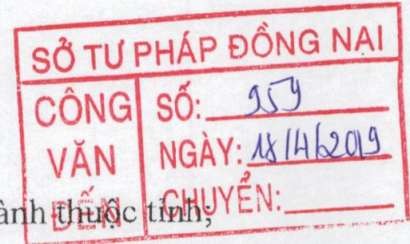 SỞ TƯ PHÁP ĐỒNG NAI
CÔNG VĂN ĐẾN
SỐ: 959
NGÀY: 18/4/2019
CHUYỂN:
ành thuộc tỉnh;